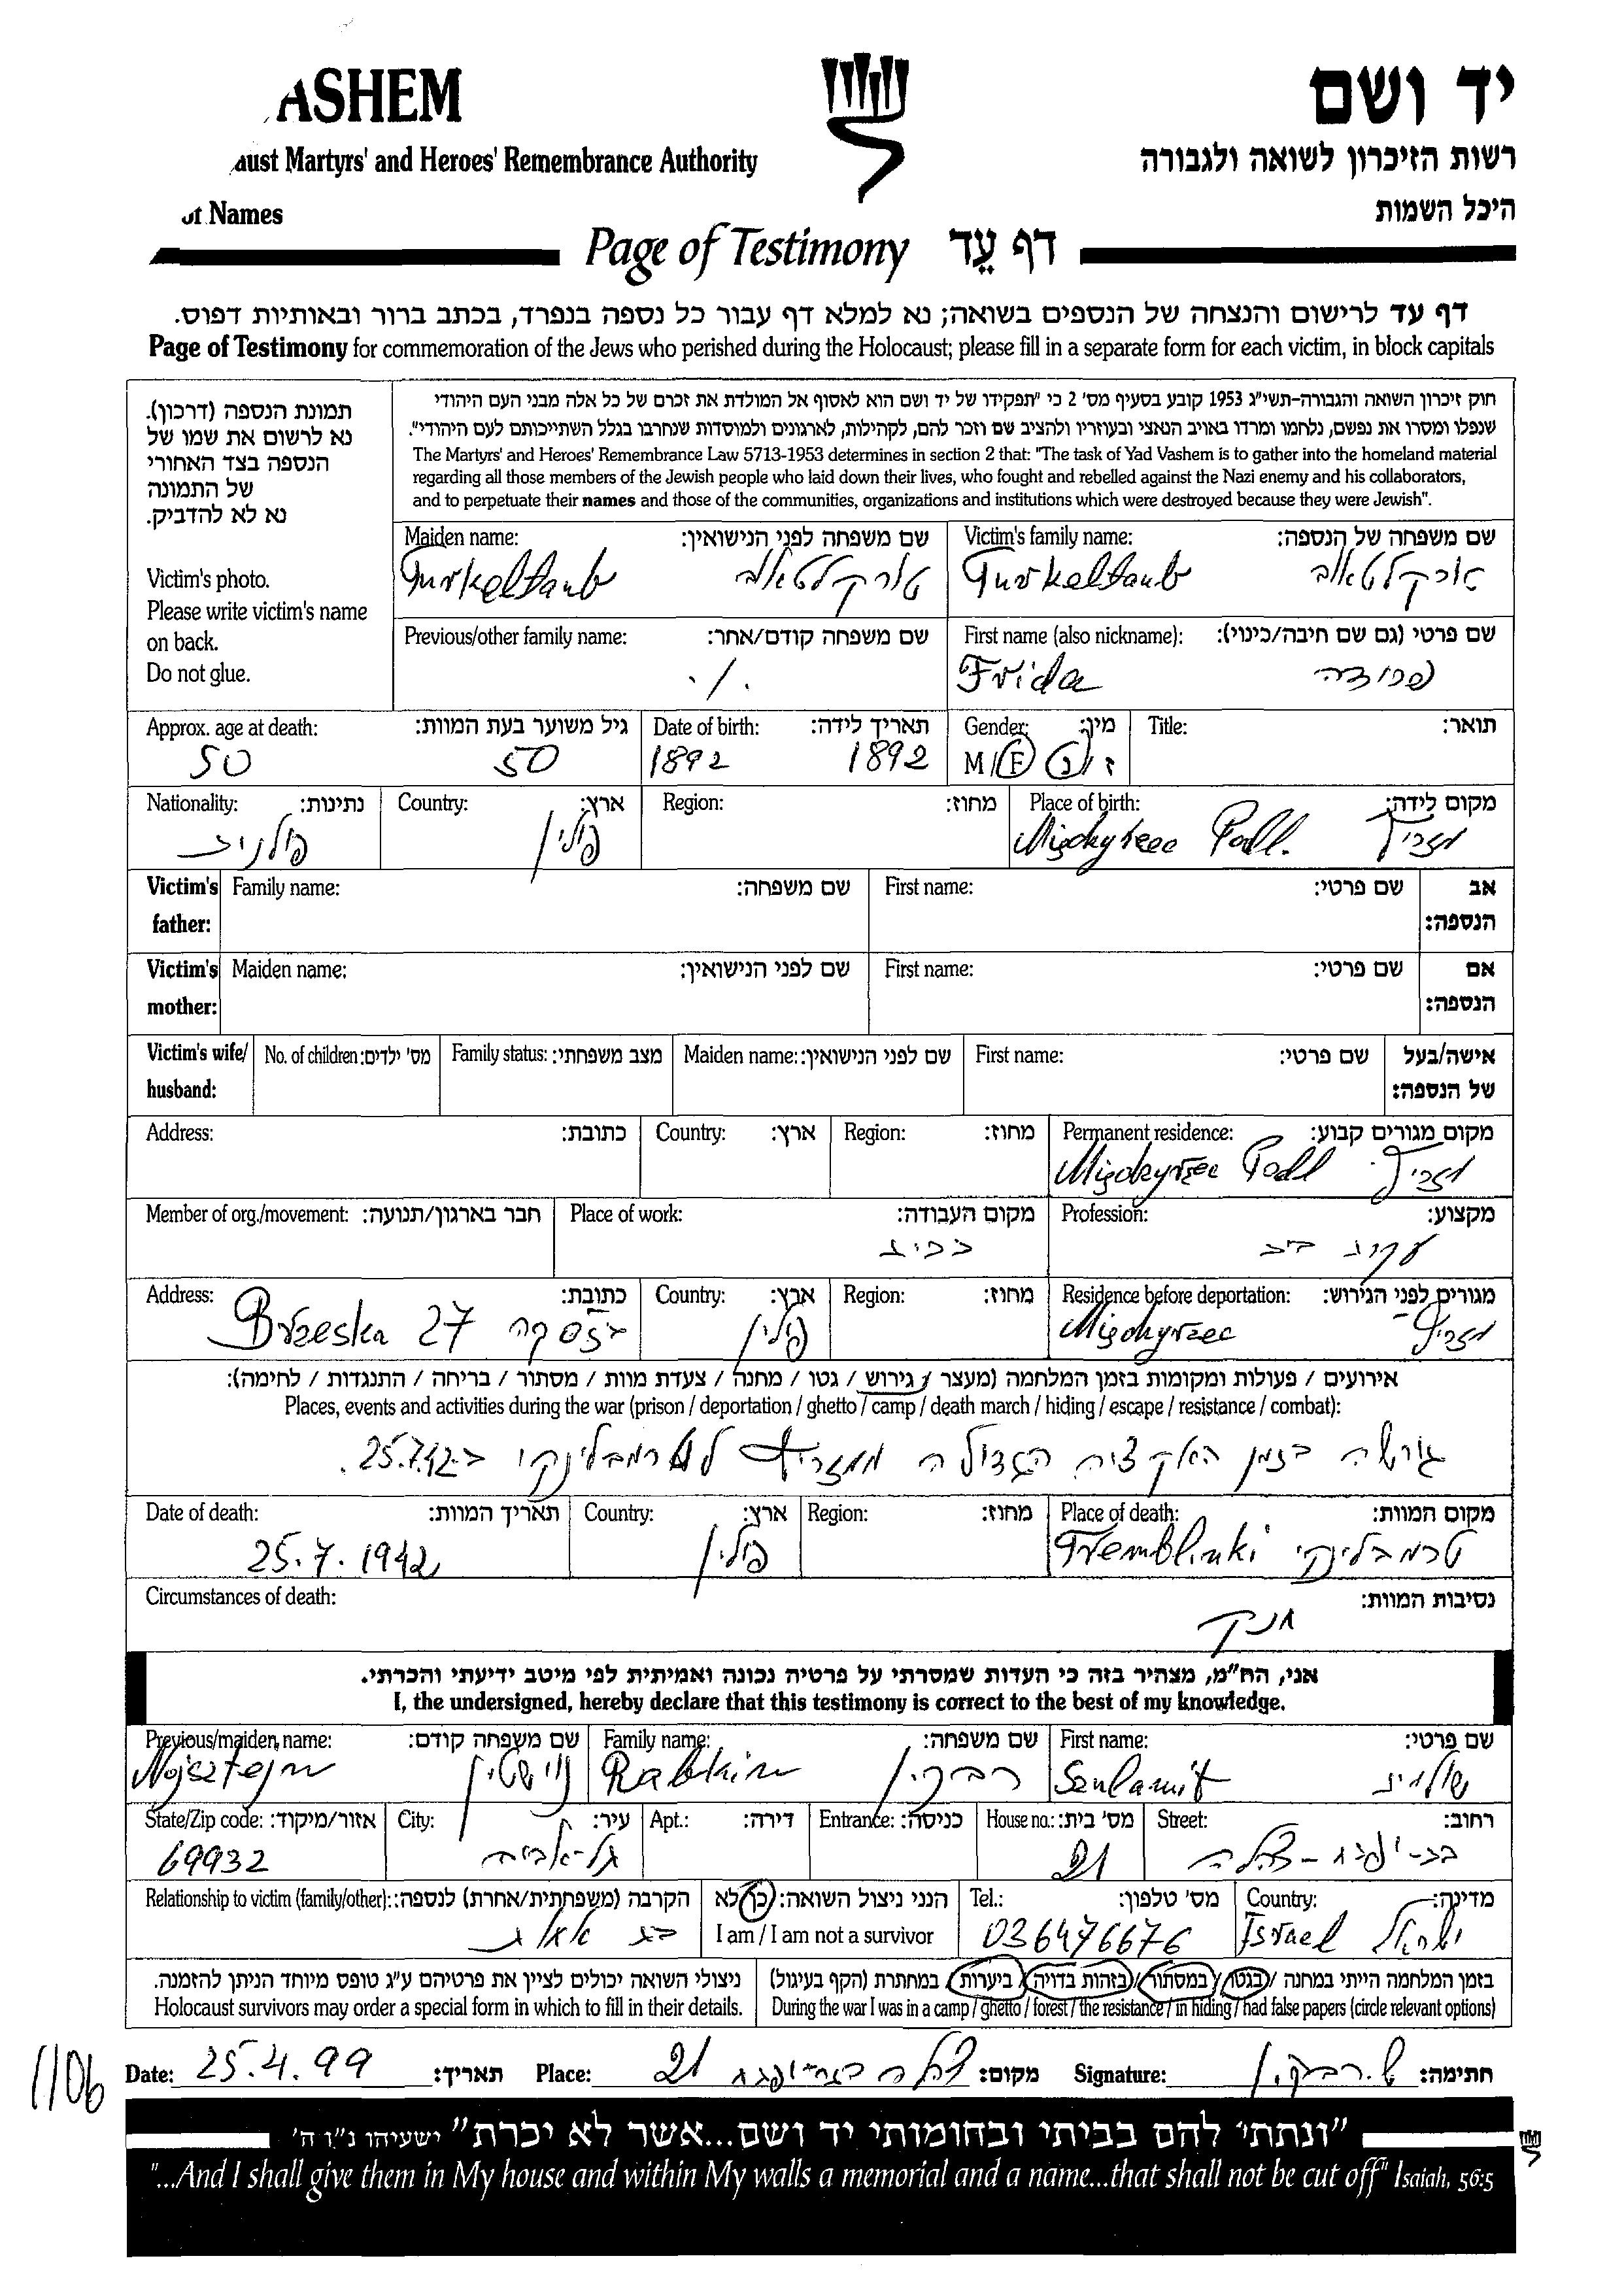 ASHEM
יד ושם
aust Martyrs' and Heroes' Remembrance Authority
רשות הזיכרון לשואה ולגבורה
of Names
היכל השמות
Page of Testimony דף עֵד
דף עד לרישום והנצחה של הנספים בשואה; נא למלא דף עבור כל נספה בנפרד, בכתב ברור ובאותיות דפוס.
Page of Testimony for commemoration of the Jews who perished during the Holocaust; please fill in a separate form for each victim, in block capitals
תמונת הנספה (דרכון).
נא לרשום את שמו של
הנספה בצד האחורי
של התמונה
נא לא להדביק.
Victim's photo.
Please write victim's name
on back.
Do not glue.
חוק זיכרון השואה והגבורה-תשי"ג 1953 קובע בסעיף מס' 2 כי "תפקידו של יד ושם הוא לאסוף אל המולדת את זכרם של כל אלה מבני העם היהודי
שנפלו ומסרו את נפשם, נלחמו ומרדו באויב הנאצי ובעוזריו ולהציב שם וזכר להם, לקהילות, לארגונים ולמוסדות שנחרבו בגלל השתייכותם לעם היהודי".
The Martyrs' and Heroes' Remembrance Law 5713-1953 determines in section 2 that: "The task of Yad Vashem is to gather into the homeland material
regarding all those members of the Jewish people who laid down their lives, who fought and rebelled against the Nazi enemy and his collaborators,
and to perpetuate their names and those of the communities, organizations and institutions which were destroyed because they were Jewish".
Maiden name: שם משפחה לפני הנישואין: Victim's family name: שם משפחה של הנספה:
Turkeltaub טורקלטאוב Turkeltaub טורקלטאוב
Previous/other family name: שם משפחה קודם/אחר: First name (also nickname): שם פרטי (גם שם חיבה/כינוי):
./. Frida פרידה
Approx. age at death: גיל משוער בעת המוות: Date of birth: תאריך לידה: Gender: מין: Title: תואר:
50 50 1892 1892 M/F ז/נ
Nationality: נתינות: Country: ארץ: Region: מחוז: Place of birth: מקום לידה:
פולניה פולין Międzyrzec Podl. מזריץ
Victim's father: Family name: שם משפחה: First name: שם פרטי: אב הנספה:
Victim's mother: Maiden name: שם לפני הנישואין: First name: שם פרטי: אם הנספה:
Victim's wife/ husband: No. of children: מס' ילדים: Family status: מצב משפחתי: Maiden name: שם לפני הנישואין: First name: שם פרטי: אישה/בעל של הנספה:
Address: כתובת: Country: ארץ: Region: מחוז: Permanent residence: מקום מגורים קבוע:
Międzyrzec Podl מזריץ
Member of org./movement: חבר בארגון/תנועה: Place of work: מקום העבודה: Profession: מקצוע:
בבית עקרת בית
Address: כתובת: Country: ארץ: Region: מחוז: Residence before deportation: מגורים לפני הגירוש:
Brzeska 27 בז'סקה פולין Międzyrzec מזריץ
אירועים / פעולות ומקומות בזמן המלחמה (מעצר / גירוש / גטו / מחנה / צעדת מוות / מסתור / בריחה / התנגדות / לחימה):
Places, events and activities during the war (prison / deportation / ghetto / camp / death march / hiding / escape / resistance / combat):
גורשה בזמן האקציה הגדולה ממזריץ לטרמבלינקי ב-25.7.42.
Date of death: תאריך המוות: Country: ארץ: Region: מחוז: Place of death: מקום המוות:
25.7.1942 פולין Tremblinki טרמבלינקי
Circumstances of death: נסיבות המוות:
חנק
אני, הח"מ, מצהיר בזה כי העדות שמסרתי על פרטיה נכונה ואמיתית לפי מיטב ידיעתי והכרתי.
I, the undersigned, hereby declare that this testimony is correct to the best of my knowledge.
Previous/maiden name: שם משפחה קודם: Family name: שם משפחה: First name: שם פרטי:
Nojsztejn נוישטיין Rabkin רבקין Szulamit שולמית
State/Zip code: אזור/מיקוד: City: עיר: Apt.: דירה: Entrance: כניסה: House no.: מס' בית: Street: רחוב:
69932 תל-אביב 21 בני-יפונה - צהלה
Relationship to victim (family/other): הקרבה (משפחתית/אחרת) לנספה: הנני ניצול השואה: כן/לא Tel.: מס' טלפון: Country: מדינה:
בת אחות I am / I am not a survivor 036476676 Israel ישראל
ניצולי השואה יכולים לציין את פרטיהם ע"ג טופס מיוחד הניתן להזמנה. בזמן המלחמה הייתי במחנה /בגטו/ במסתור/ בזהות בדויה/ ביערות/ במחתרת (הקף בעיגול)
Holocaust survivors may order a special form in which to fill in their details. During the war I was in a camp / ghetto / forest / the resistance / in hiding / had false papers (circle relevant options)
1106
Date: 25.4.99 תאריך: Place: 21 צהלה מקום: Signature: ש. רבקין חתימה:
"ונתתי להם בביתי ובחומותי יד ושם...אשר לא יכרת" ישעיהו נ"ו ה'
"...And I shall give them in My house and within My walls a memorial and a name...that shall not be cut off" Isaiah, 56:5